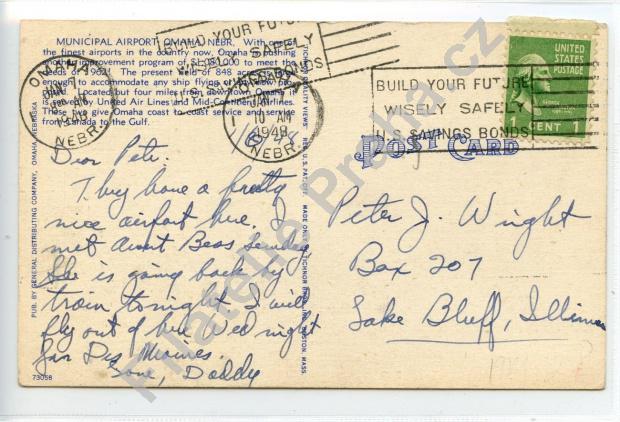 MUNICIPAL AIRPORT, OMAHA, NEBR. With one of
the finest airports in the country now, Omaha is pushing
another improvement program of $1,081,000 to meet the
needs of 1960. The present field of 848 acres is big
enough to accommodate any ship flying or planned
for. Located but four miles from downtown Omaha it
is served by United Air Lines and Mid-Continent Airlines.
These two give Omaha coast to coast service and service
from Canada to the Gulf.
OMAHA
1948
NEBR.
BUILD YOUR FUTURE
WISELY SAFELY
U.S. SAVINGS BONDS
10 AM
1948
NEBR.
BUILD YOUR FUTURE
WISELY SAFELY
U.S. SAVINGS BONDS
UNITED
STATES
POSTAGE
1 CENT 1
POST CARD
Dear Pete.
They have a pretty
nice airport here. I
met Aunt Bess Sunday
She is going back by
train tonight I will
fly out of here Wed night
for Des Moines.
Love, Daddy
Peter J. Wright
Box 207
Lake Bluff, Illinois
PUB. BY GENERAL DISTRIBUTING COMPANY, OMAHA, NEBRASKA
73058
TICHNOR QUALITY VIEWS REG. U.S. PAT. OFF. MADE ONLY BY TICHNOR BROS., INC., BOSTON, MASS.
Filatelie Praha.cz